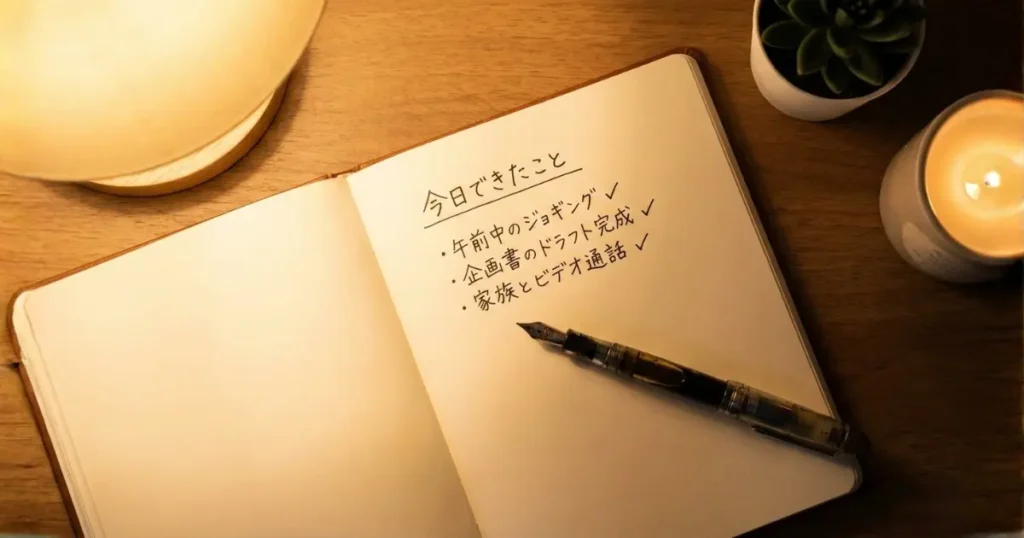 今日できたこと
・午前中のジョギング ✓
・企画書のドラフト完成 ✓
・家族とビデオ通話 ✓